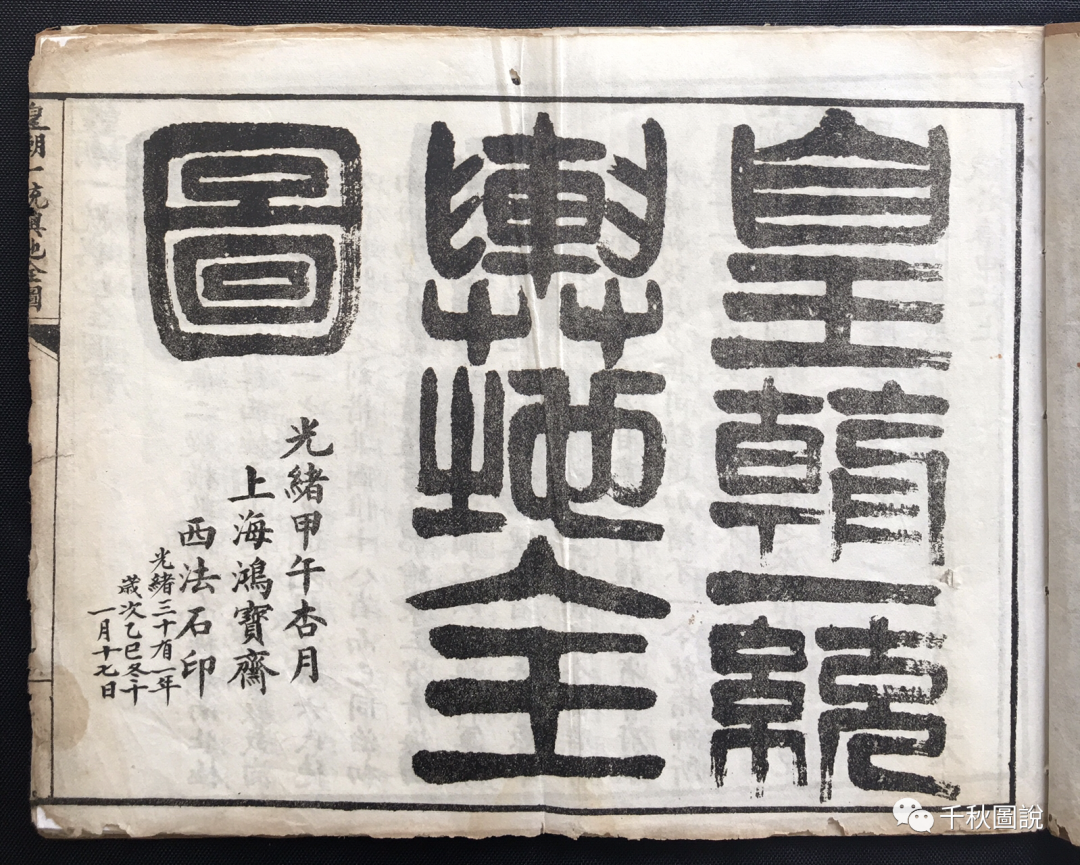 皇朝一統
輿地全
圖
光緒甲午杏月
上海鴻寶齋
西法石印
光緒三十有一年
歲次乙巳冬十
一月十九日
皇朝一統輿地全圖
千秋圖說